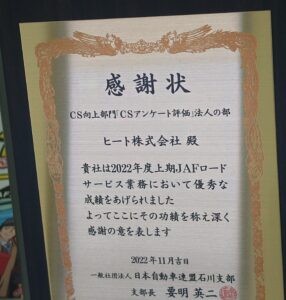 感謝状
CS向上部門「CSアンケート評価」法人の部
ヒート株式会社 殿
貴社は2022年度上期JAFロード
サービス業務において優秀な
成績をあげられました
よってここにその功績を称え深く
感謝の意を表します
2022年11月吉日
一般社団法人 日本自動車連盟石川支部
支部長 要明 英二